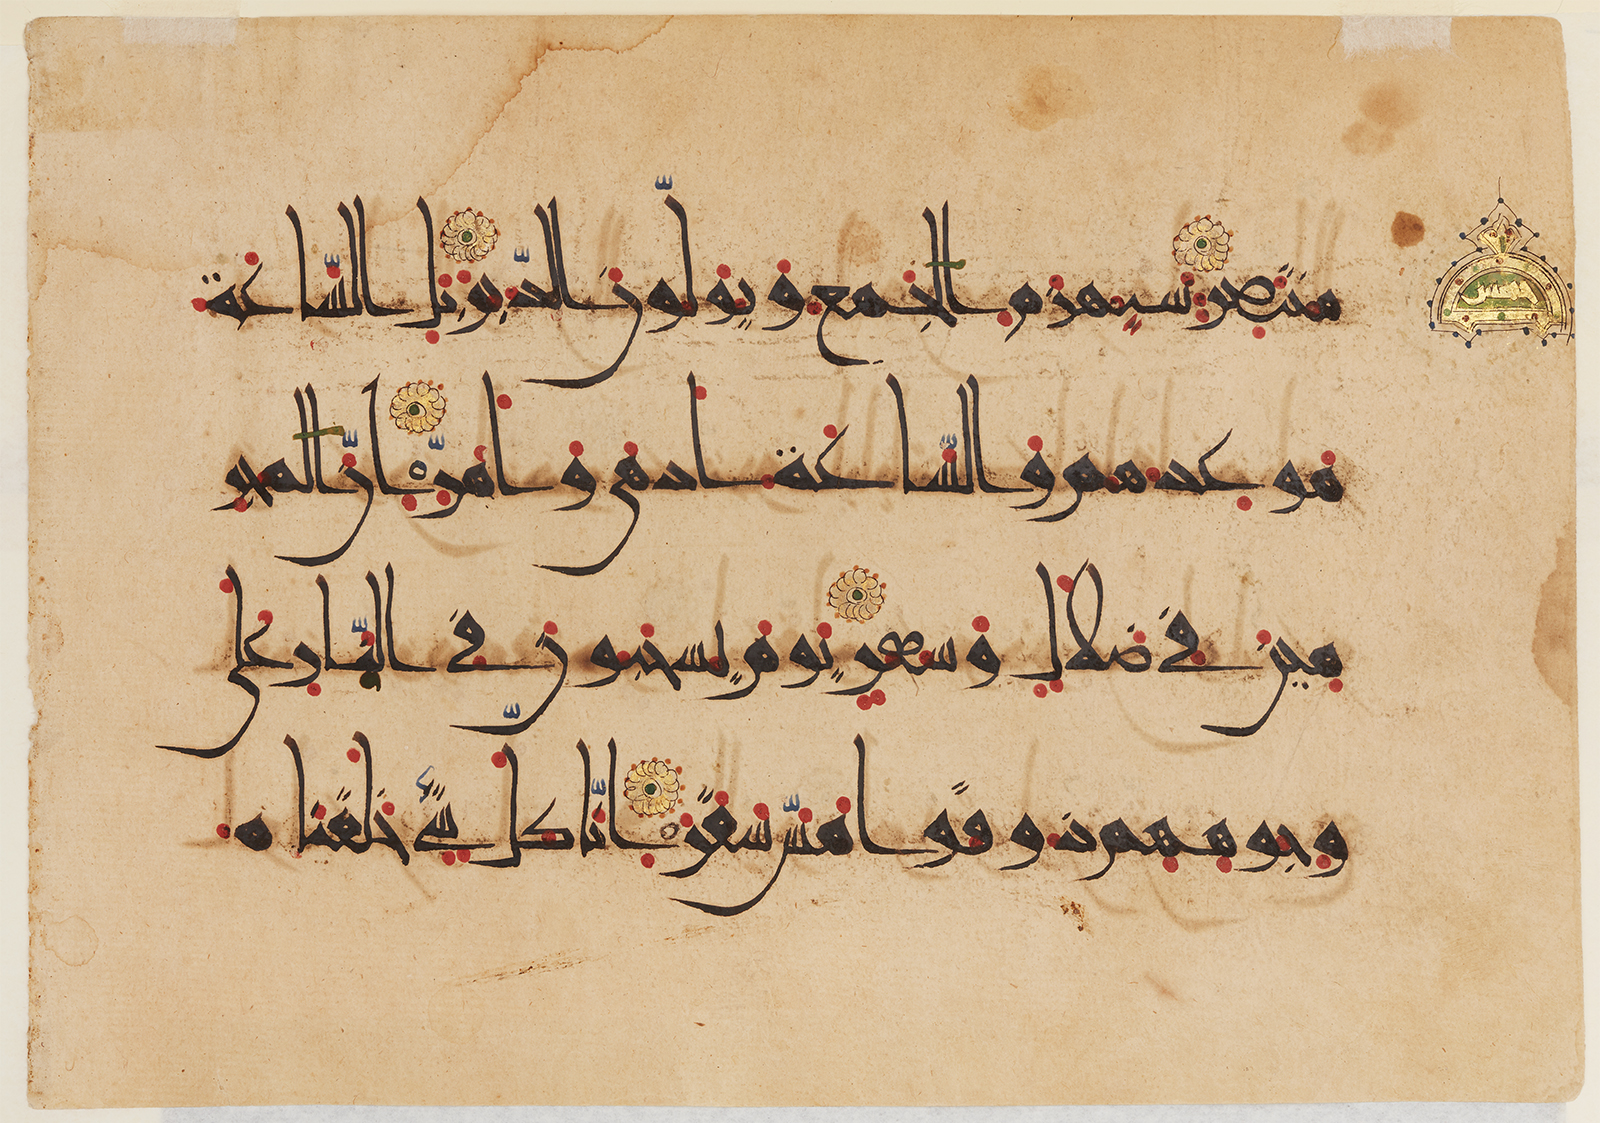 منتصر سيهزم الجمع ويولون الدبر بل الساعة
موعدهم والساعة ادهى وامر ان المجر
مين في ضلال وسعر يوم يسحبون في النار على
وجوههم ذوقوا مس سقر انا كل شيء خلقناه